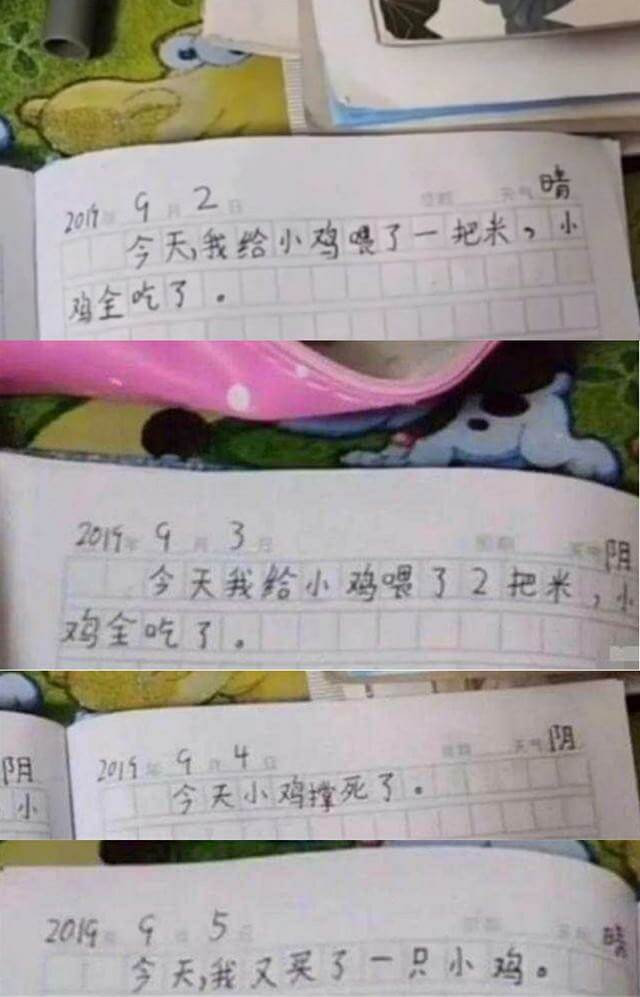 2019年 9月 2日 星期 天气 晴
今天,我给小鸡喂了一把米，小
鸡全吃了。
2019年 9月 3日 星期 天气 阴
今天我给小鸡喂了2把米，小
鸡全吃了。
阴
小
2019年 9月 4日 星期 天气 阴
今天小鸡撑死了。
2019年 9月 5日 星期 天气 晴
今天,我又买了一只小鸡。